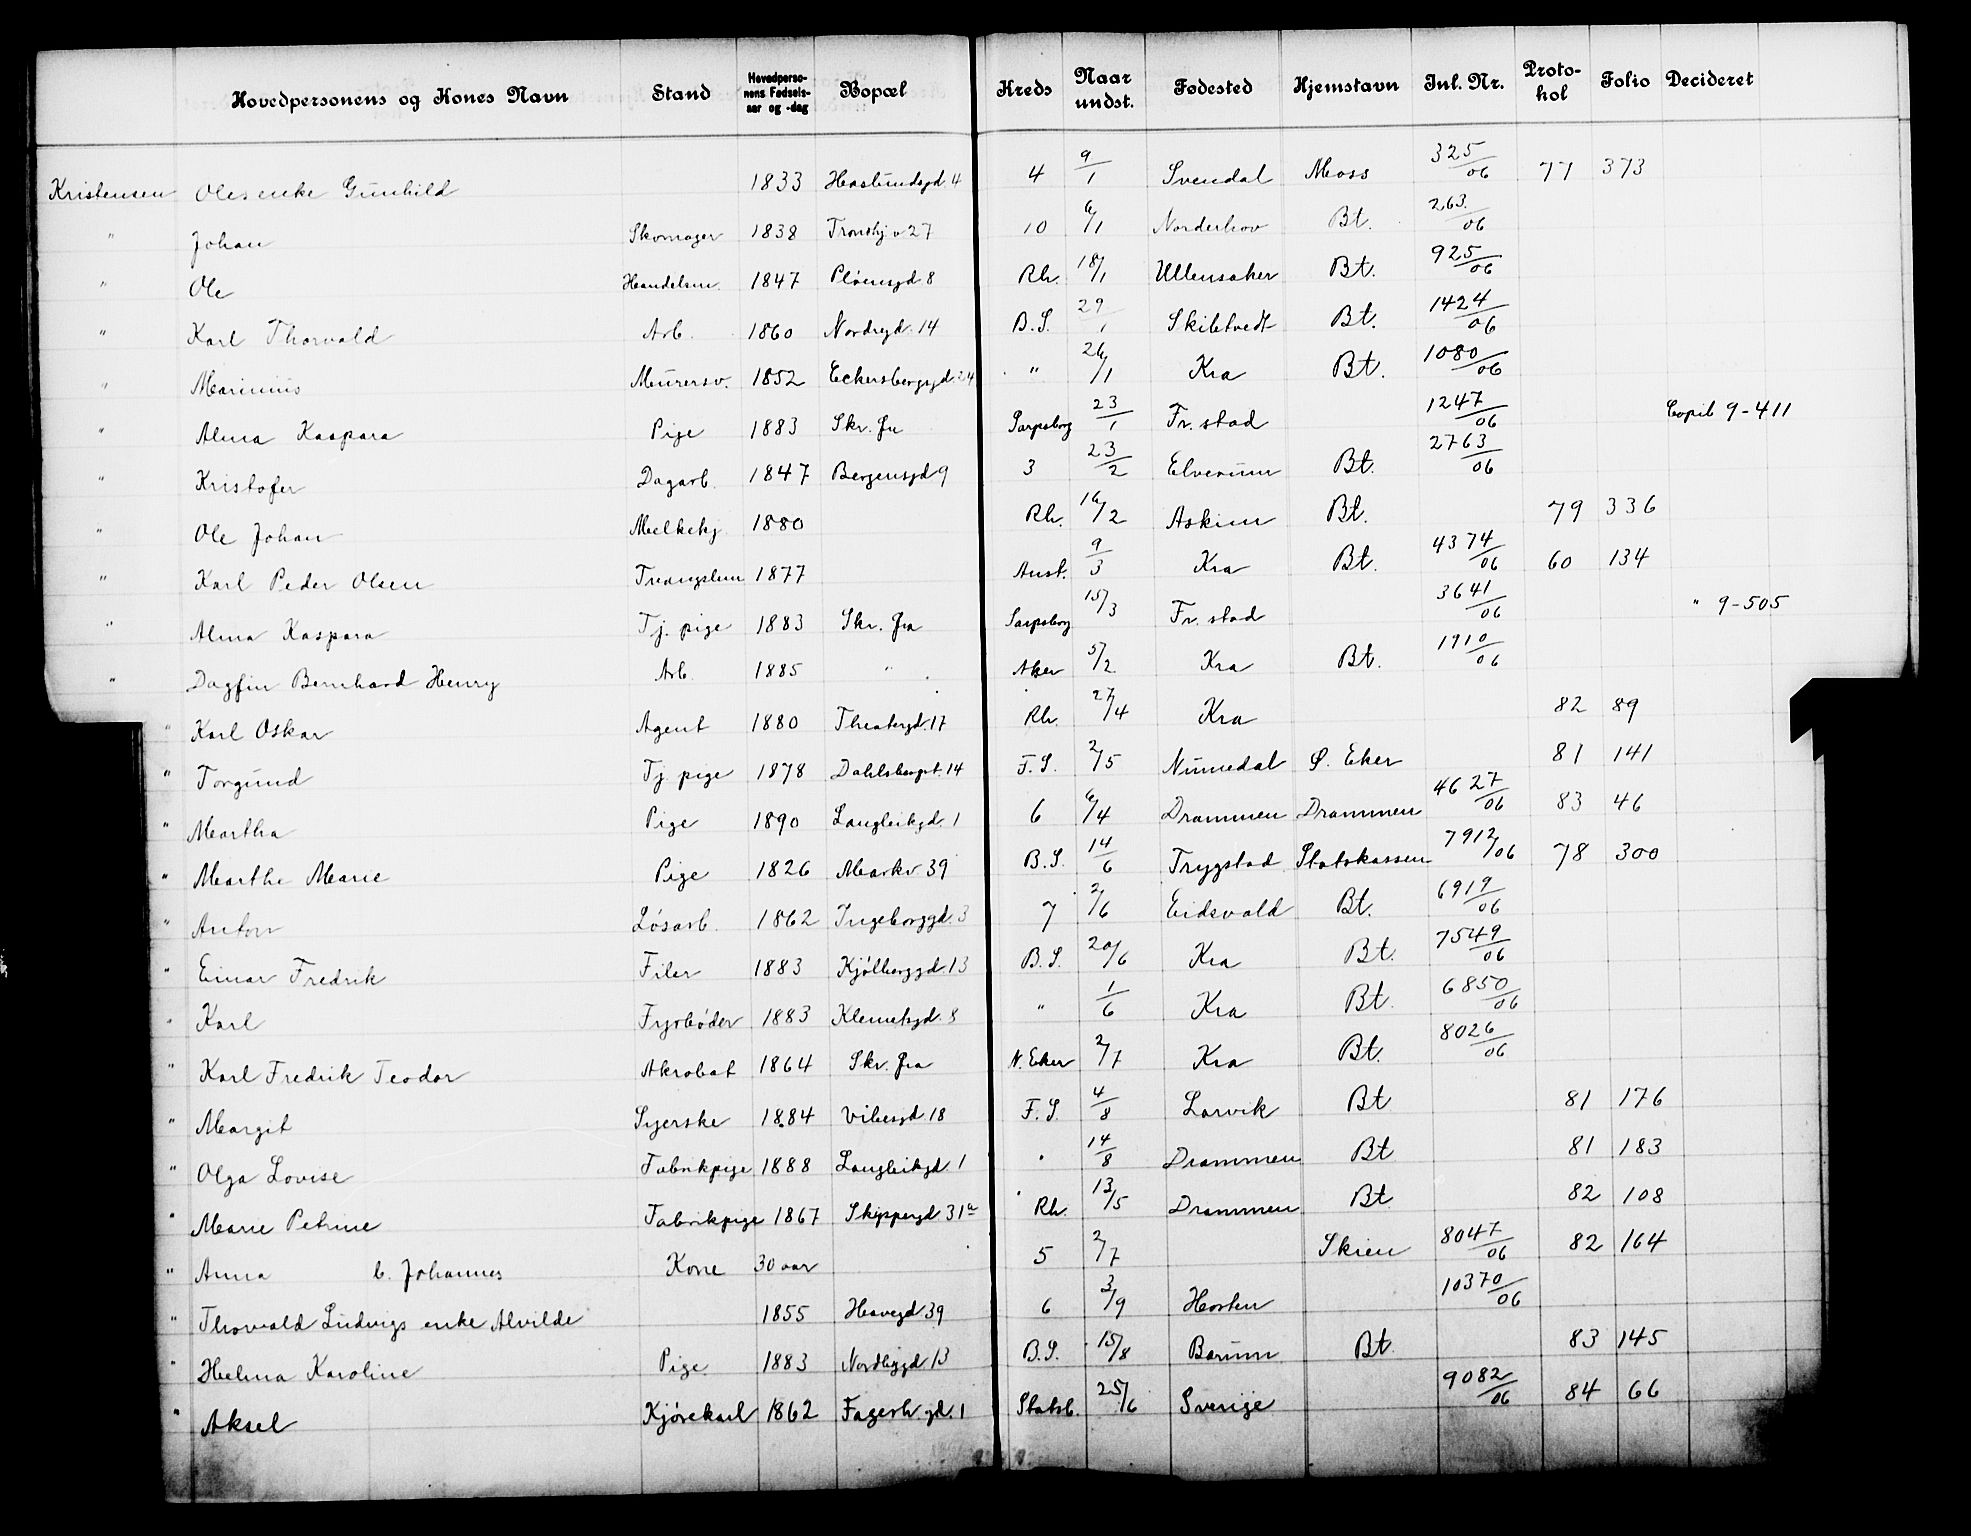 Hovedpersonens og Kones Navn Stand Hovedperso-nens Fødsels-aar og -dag Bopæl Kreds Naar undst. Fødested Hjemstavn Jnl. Nr. Proto-kol Folio Decideret
Kristensen Oles enke Gunhild 1833 Haslundsgd. 4 4 9/1 Svendal Moss 325/06 77 373
" Johan Skomager 1838 Tronhj v 27 10 6/1 Norderhov Bt. 263/06
" Ole Handelsm. 1847 Pløensgd 8 Rh. 18/1 Ullensaker Bt. 925/06
" Karl Thorvald Arb. 1860 Nordregd. 14 B.S. 29/1 Skibtvedt Bt. 1424/06
" Marinius Murersv. 1852 Eckersbergsgd. 24 " 26/1 Kra Bt. 1080/06
" Alma Kaspara Pige 1883 Skr. fra Sarpsborg 23/1 Fr. stad 1247/06 Copib 9-411
" Kristofer Dagarb. 1847 Bergensgd 9 3 23/2 Elverum Bt. 2763/06
" Ole Johan Melkekj 1880 Rh. 16/2 Askim Bt. 79 336
" Karl Peder Olsen Tvangslem 1877 Anst. 9/3 Kra Bt. 4374/06 60 134
" Alma Kaspara Tj. pige 1883 Skr. fra Sarpsborg 15/3 Fr. stad 3641/06 " 9-505
" Dagfin Bernhard Henry Arb. 1885 " Aker 5/2 Kra Bt. 1910/06
" Karl Oskar Agent 1880 Theatergd. 17 Rh. 27/4 Kra 82 89
" Torgund Tj. pige 1878 Dahlsbergst. 14 F.S. 2/5 Numedal Ø. Eker 81 141
" Martha Pige 1890 Langleikgd. 1 6 6/4 Drammen Drammen 4627/06 83 46
" Marthe Marie Pige 1826 Markv 39 B.S. 14/6 Trygstad Statskassen 7912/06 78 300
" Anton Løsarb. 1862 Ingeborggd. 3 7 2/6 Eidsvold Bt. 6919/06
" Einar Fredrik Filer 1883 Kjølberggd. 13 B.S. 20/6 Kra Bt. 7549/06
" Karl Fyrbøder 1883 Klemetsgd. 8 " 1/6 Kra Bt. 6850/06
" Karl Fredrik Teodor Akrobat 1864 Skr. fra N. Eker 2/7 Kra Bt. 8026/06
" Margit Syerske 1884 Vibesgd 18 F.S. 4/8 Larvik Bt 81 176
" Olga Lovise Fabrikpige 1888 Langleikgd. 1 " 14/8 Drammen Bt 81 183
" Marie Petrine Fabrikpige 1867 Skippergd 31a Rh. 13/5 Drammen Bt 82 108
" Anna b. Johannes Kone 30 aar 5 2/7 Skien 8047/06 82 164
" Thorvald Ludvigs enke Alvilde 1855 Havegd 39 6 3/9 Horten 10370/06
" Helma Karoline Pige 1883 Nordbygd 13 B.S. 15/8 Bærum Bt. 83 145
" Aksel Kjørekarl 1862 Fagerh. gd. 1 Statsb. 25/6 Sverige 9082/06 84 66